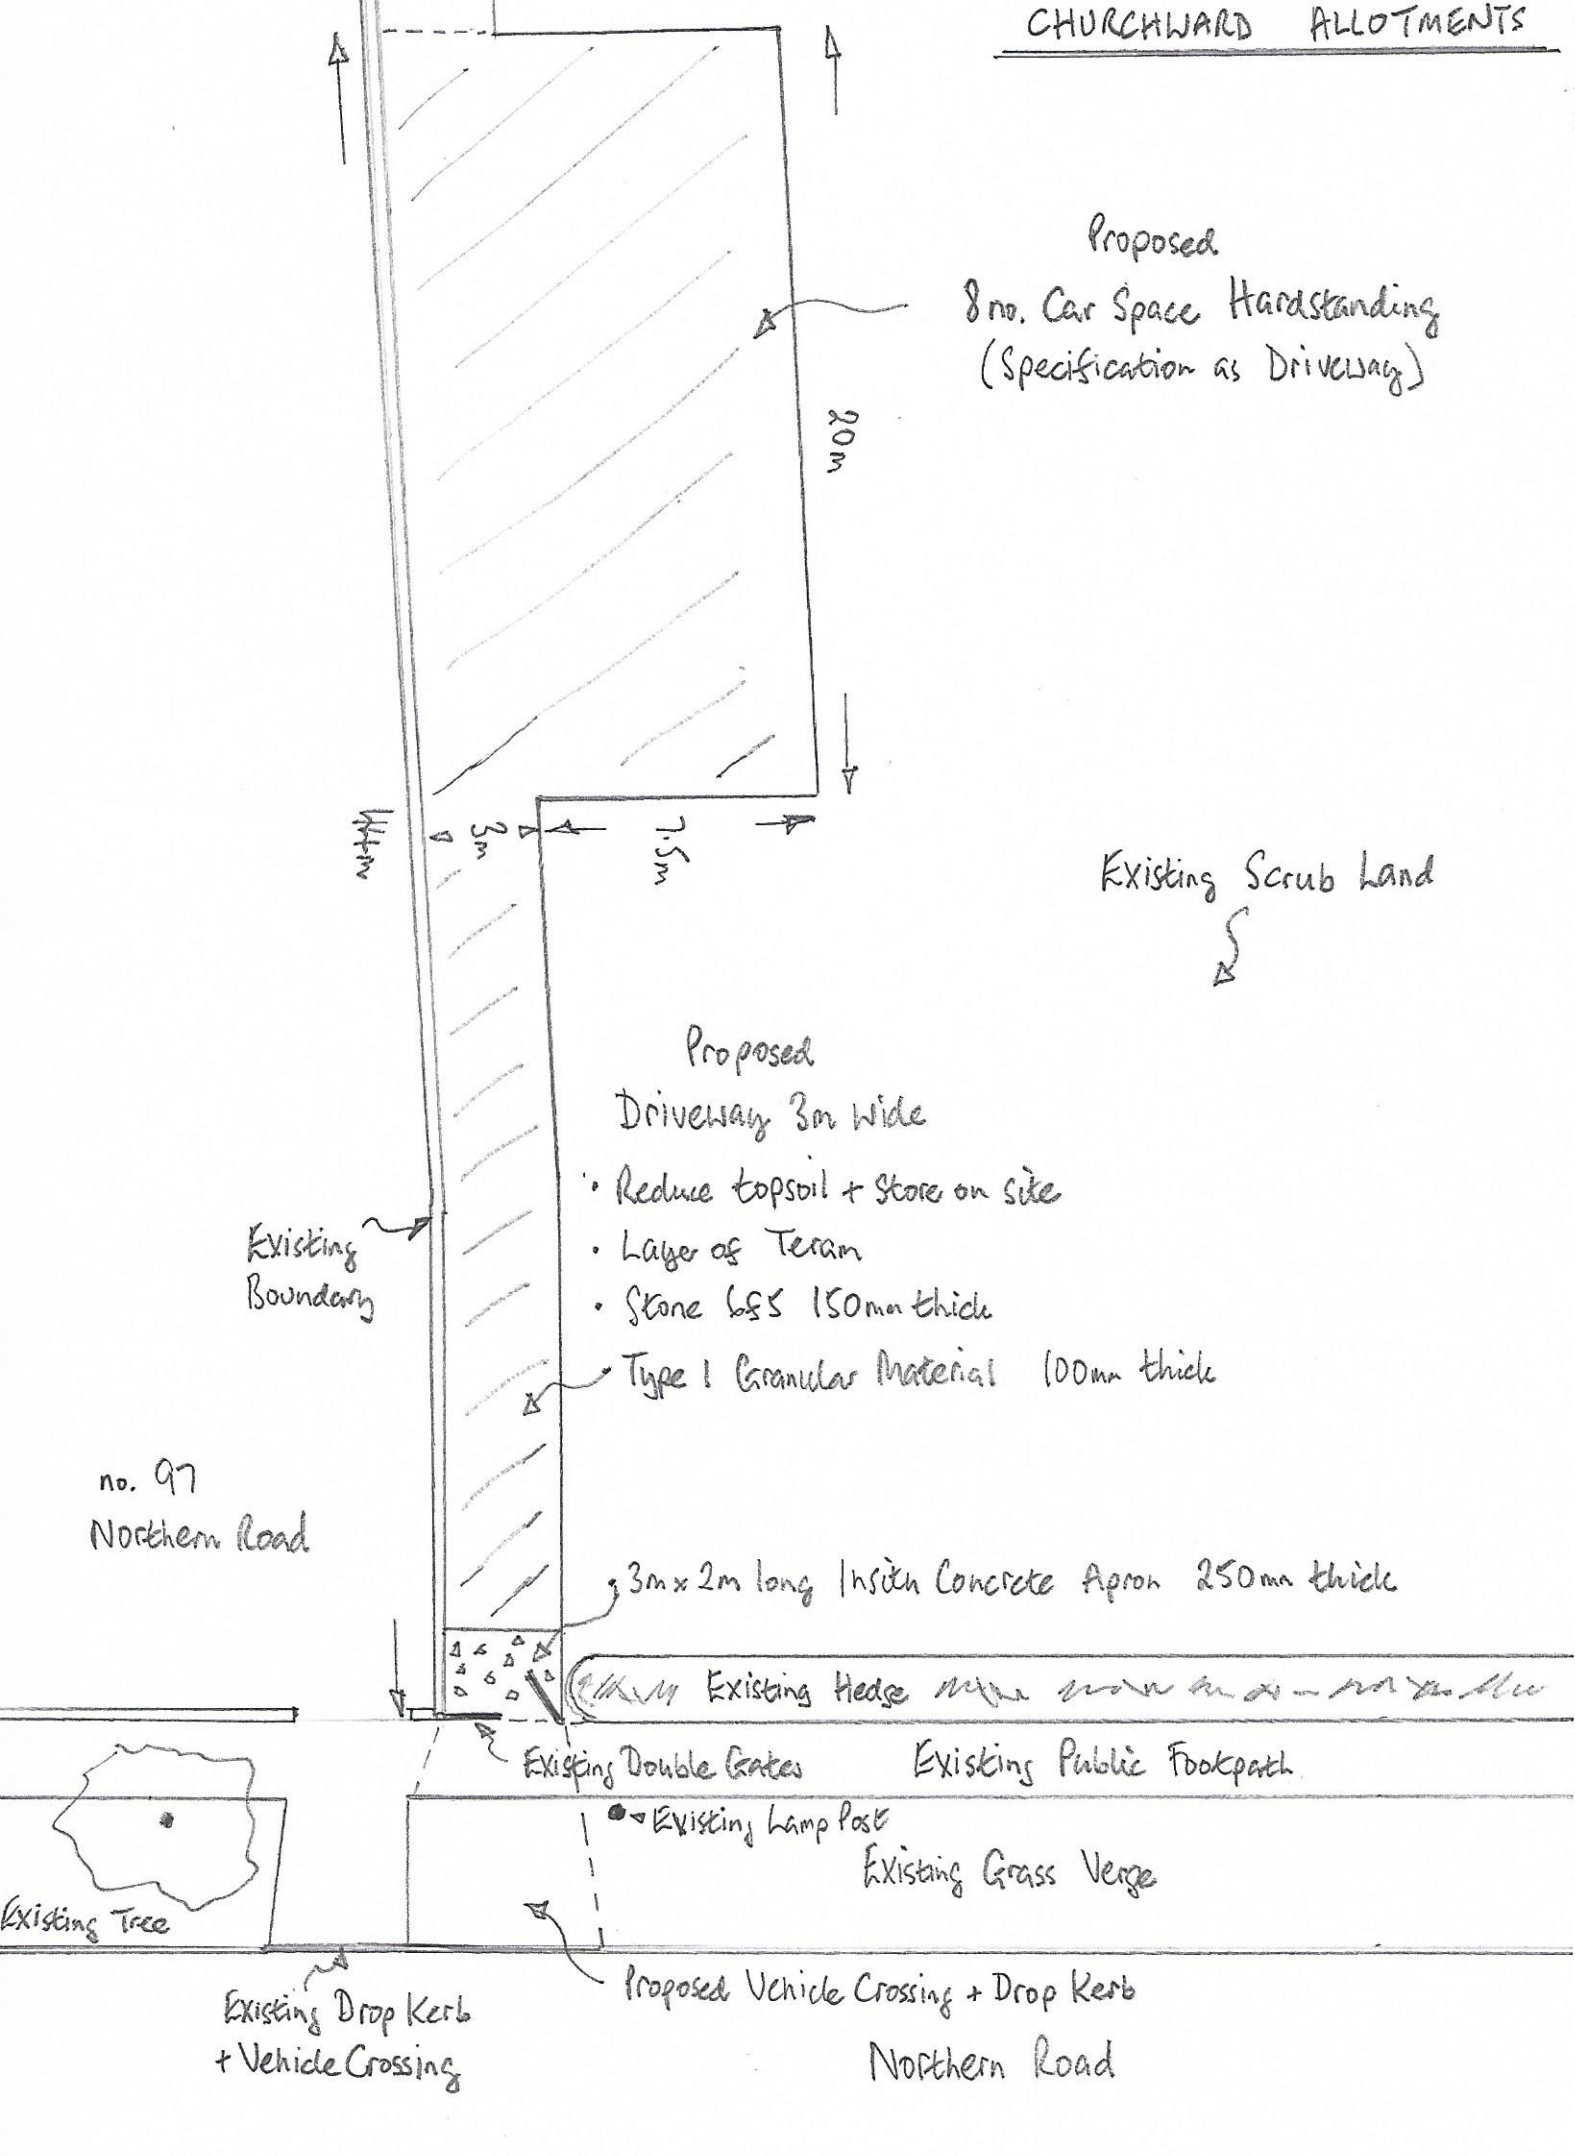 CHURCHWARD ALLOTMENTS
Proposed
8no. Car Space Hardstanding
(Specification as Driveway)
20m
3m
7.5m
Existing Scrub Land
Proposed
Driveway 3m wide
· Reduce topsoil + Store on site
· Layer of Teram
· Stone 6f5 150mm thick
· Type 1 Granular Material 100mm thick
Existing
Boundary
no. 97
Northern Road
· 3m x 2m long Insitu Concrete Apron 250mm thick
Existing Hedge
Existing Double Gates
Existing Public Footpath
Existing Lamp Post
Existing Grass Verge
Existing Tree
Proposed Vehicle Crossing + Drop Kerb
Existing Drop Kerb
+ Vehicle Crossing
Northern Road